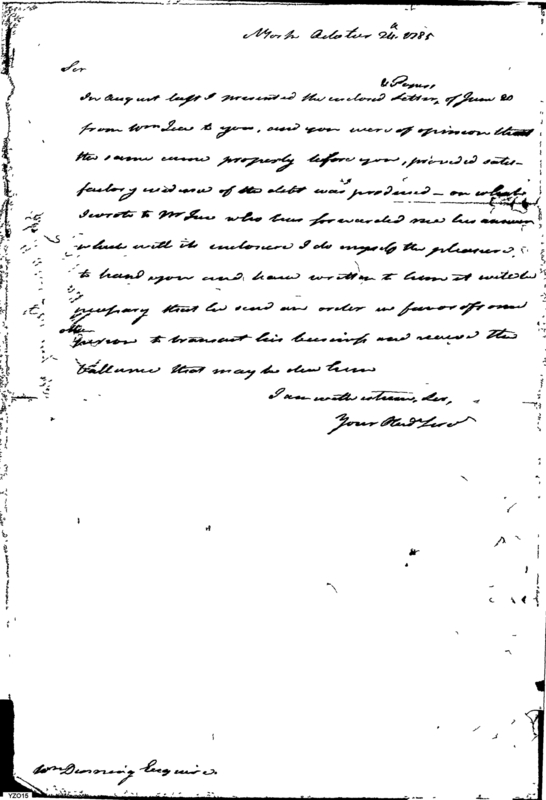 NYork October 24th 1785
Sir
& Papers,
In August last I presented the enclosed Letter, of June 20
from Wm Lee to you, and you were of opinion that
the same came properly before you, provided satis-
factory evidence of the debt was produced – on what
I wrote to Mr Lee who has forwarded me his answer
what with its enclosure I do myself the pleasure
to hand you and have written to him it will be
necessary that he send an order in favor of some
person to transact his business and receive the
Ballance that may be due him
I am with esteem, Sir,
Your Obed Serv
Wm Denning Esquire.
YZO15